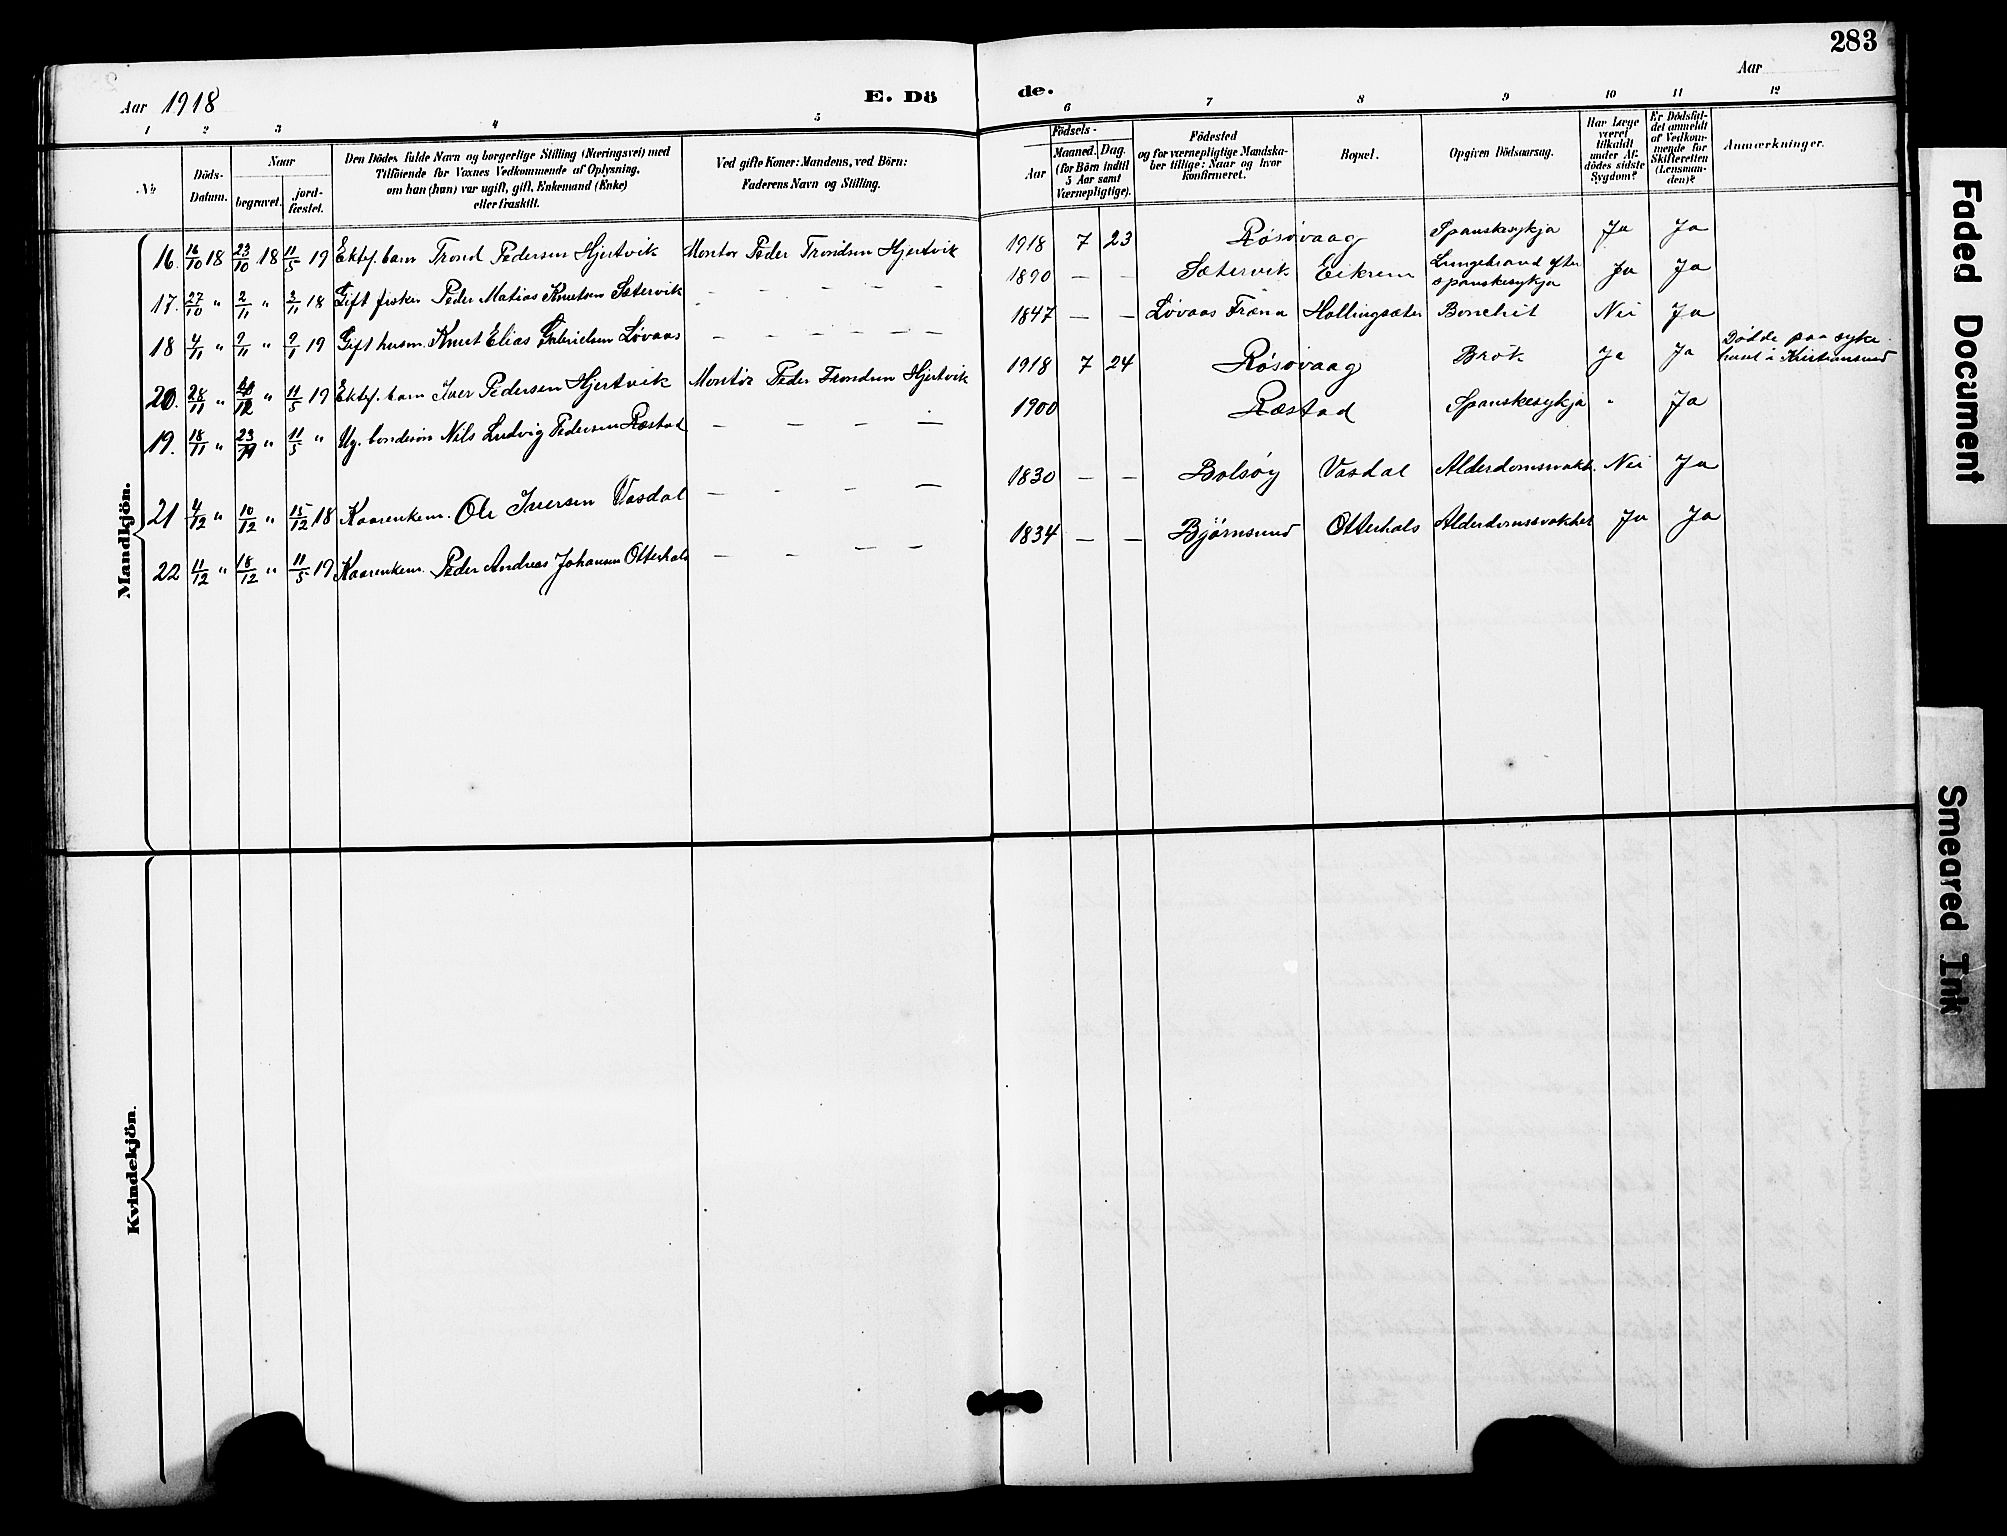 283
Aar 1918 E. Dö de. Aar
1 2 3 4 5 6 7 8 9 10 11 12
No
Döds-
Datum.
Naar
begravet. jord-
fæstet.
Den Dödes fulde Navn og borgerlige Stilling (Næringsvei) med
Tilföiende for Voxnes Vedkommende af Oplysning,
om han (hun) var ugift, gift, Enkemand (Enke)
eller fraskilt.
Ved gifte Koner: Mandens, ved Börn:
Faderens Navn og Stilling.
Födsels-
Aar Maaned. Dag.
(for Börn indtil
5 Aar samt
Værnepligtige).
Födested
og for værnepligtige Mandska-
ber tillige: Naar og hvor
konfirmeret.
Bopæl.
Opgiven Dödsaarsag.
Har Læge
været
tilkaldt
under Af-
dödes sidste
Sygdom?
Er Dödsfal-
det anmeldt
af Vedkom-
mende for
Skifteretten
(Lensman-
den)?
Anmærkninger.
Mandkjön.
16. 16/10 18 23/10 18 11/5 19 Ektef. barn Trond Pedersen Hjertvik Montør Peder Trondsen Hjertvik 1918 7 23 Røsøvaag Spanskesykja Ja Ja
17. 27/10 " 2/11 " 2/11 18 Gift fisker Peder Matias Knutsen Sætervik — — — — — 1890 — — Sætervik Eikrem Lungebrand efter spanskesykja Ja Ja
18 4/11 " 9/11 " 9/1 19 Gift husm. Knut Elias Gabrielsen Løvaas — — — — — 1847 — — Løvaas Fræna Hollingsæter Bronchit Nei Ja
20. 28/11 " /12 " 11/5 19 Ektef. barn Iver Pedersen Hjertvik Montør Peder Trondsen Hjertvik 1918 7 24 Røsøvaag Brok Ja Ja Dødde paa syke-
huset i Kristiansund
19. 18/11 " 23/11 " 11/5 " Ug. bondesøn Nils Ludvig Pedersen Ræstad — — — — 1900 Ræstad Spanskesykja " Ja
21 4/12 " 10/12 " 15/12 18 Kaarenkem. Ole Iversen Vasdal — — — — 1830 — — Bolsøy Vasdal Alderdomssvakh. Nei Ja
22 11/12 " 18/12 " 11/5 19 Kaarenkem. Peder Andreas Johansen Otterhals — — — — 1834 — — Bjørnsund Otterhals Alderdomssvakhet Ja Ja
Kvindekjön.
Faded Document
Smeared Ink